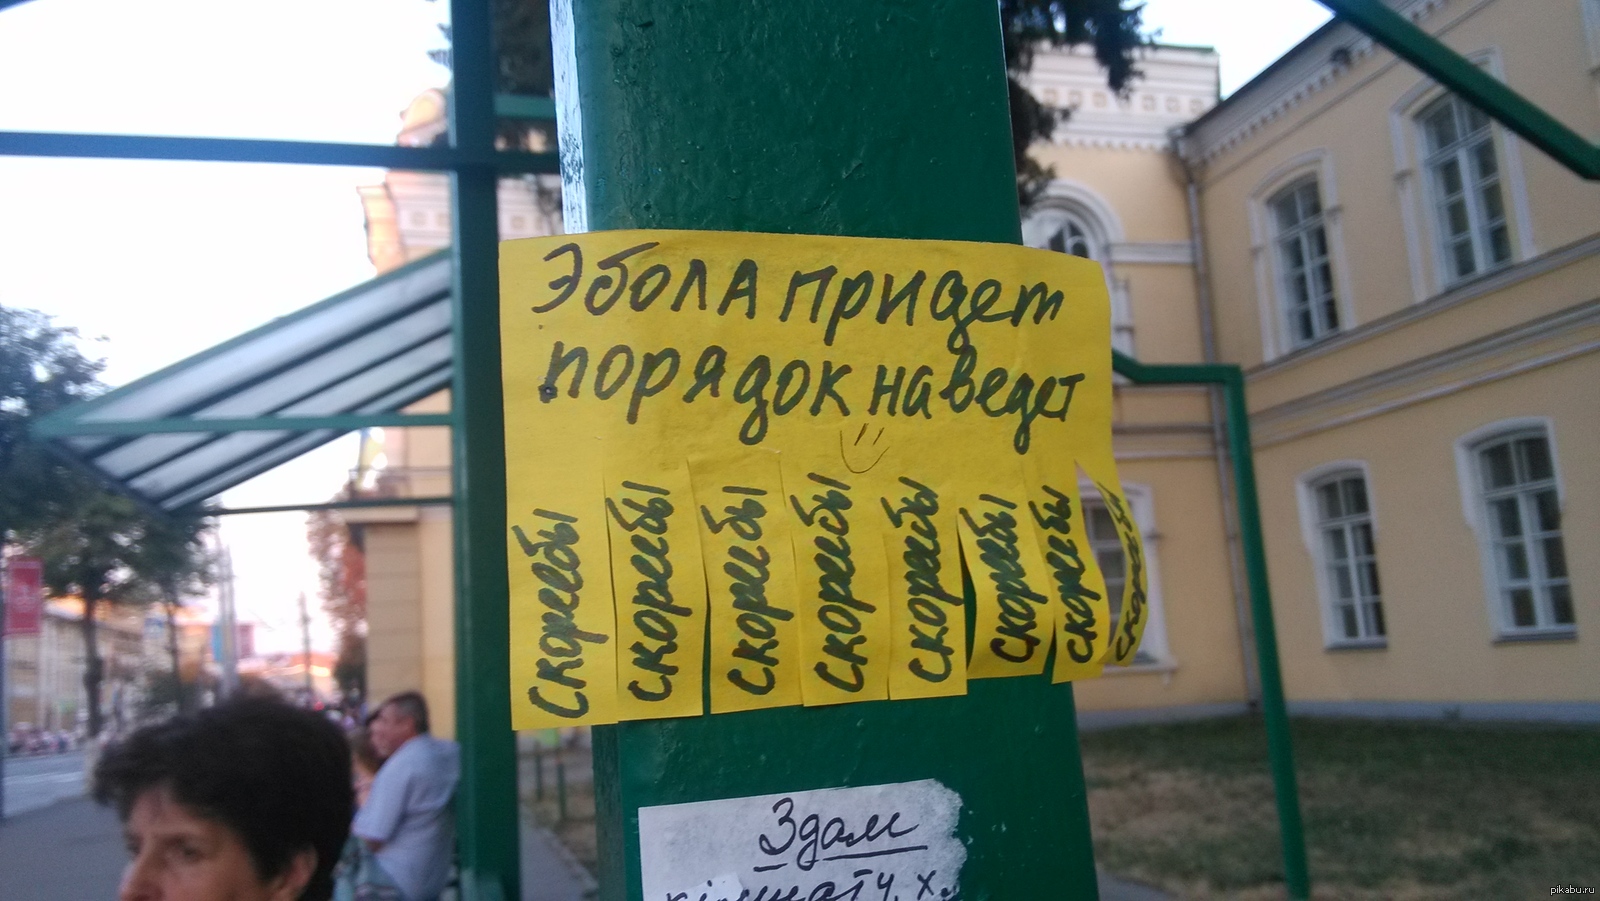 Эбола придет
порядок наведет
скорейбы
скорейбы
скорейбы
скорейбы
скорейбы
скорейбы
скорейбы
скорейбы
Здам
кімнату, х.
pikabu.ru